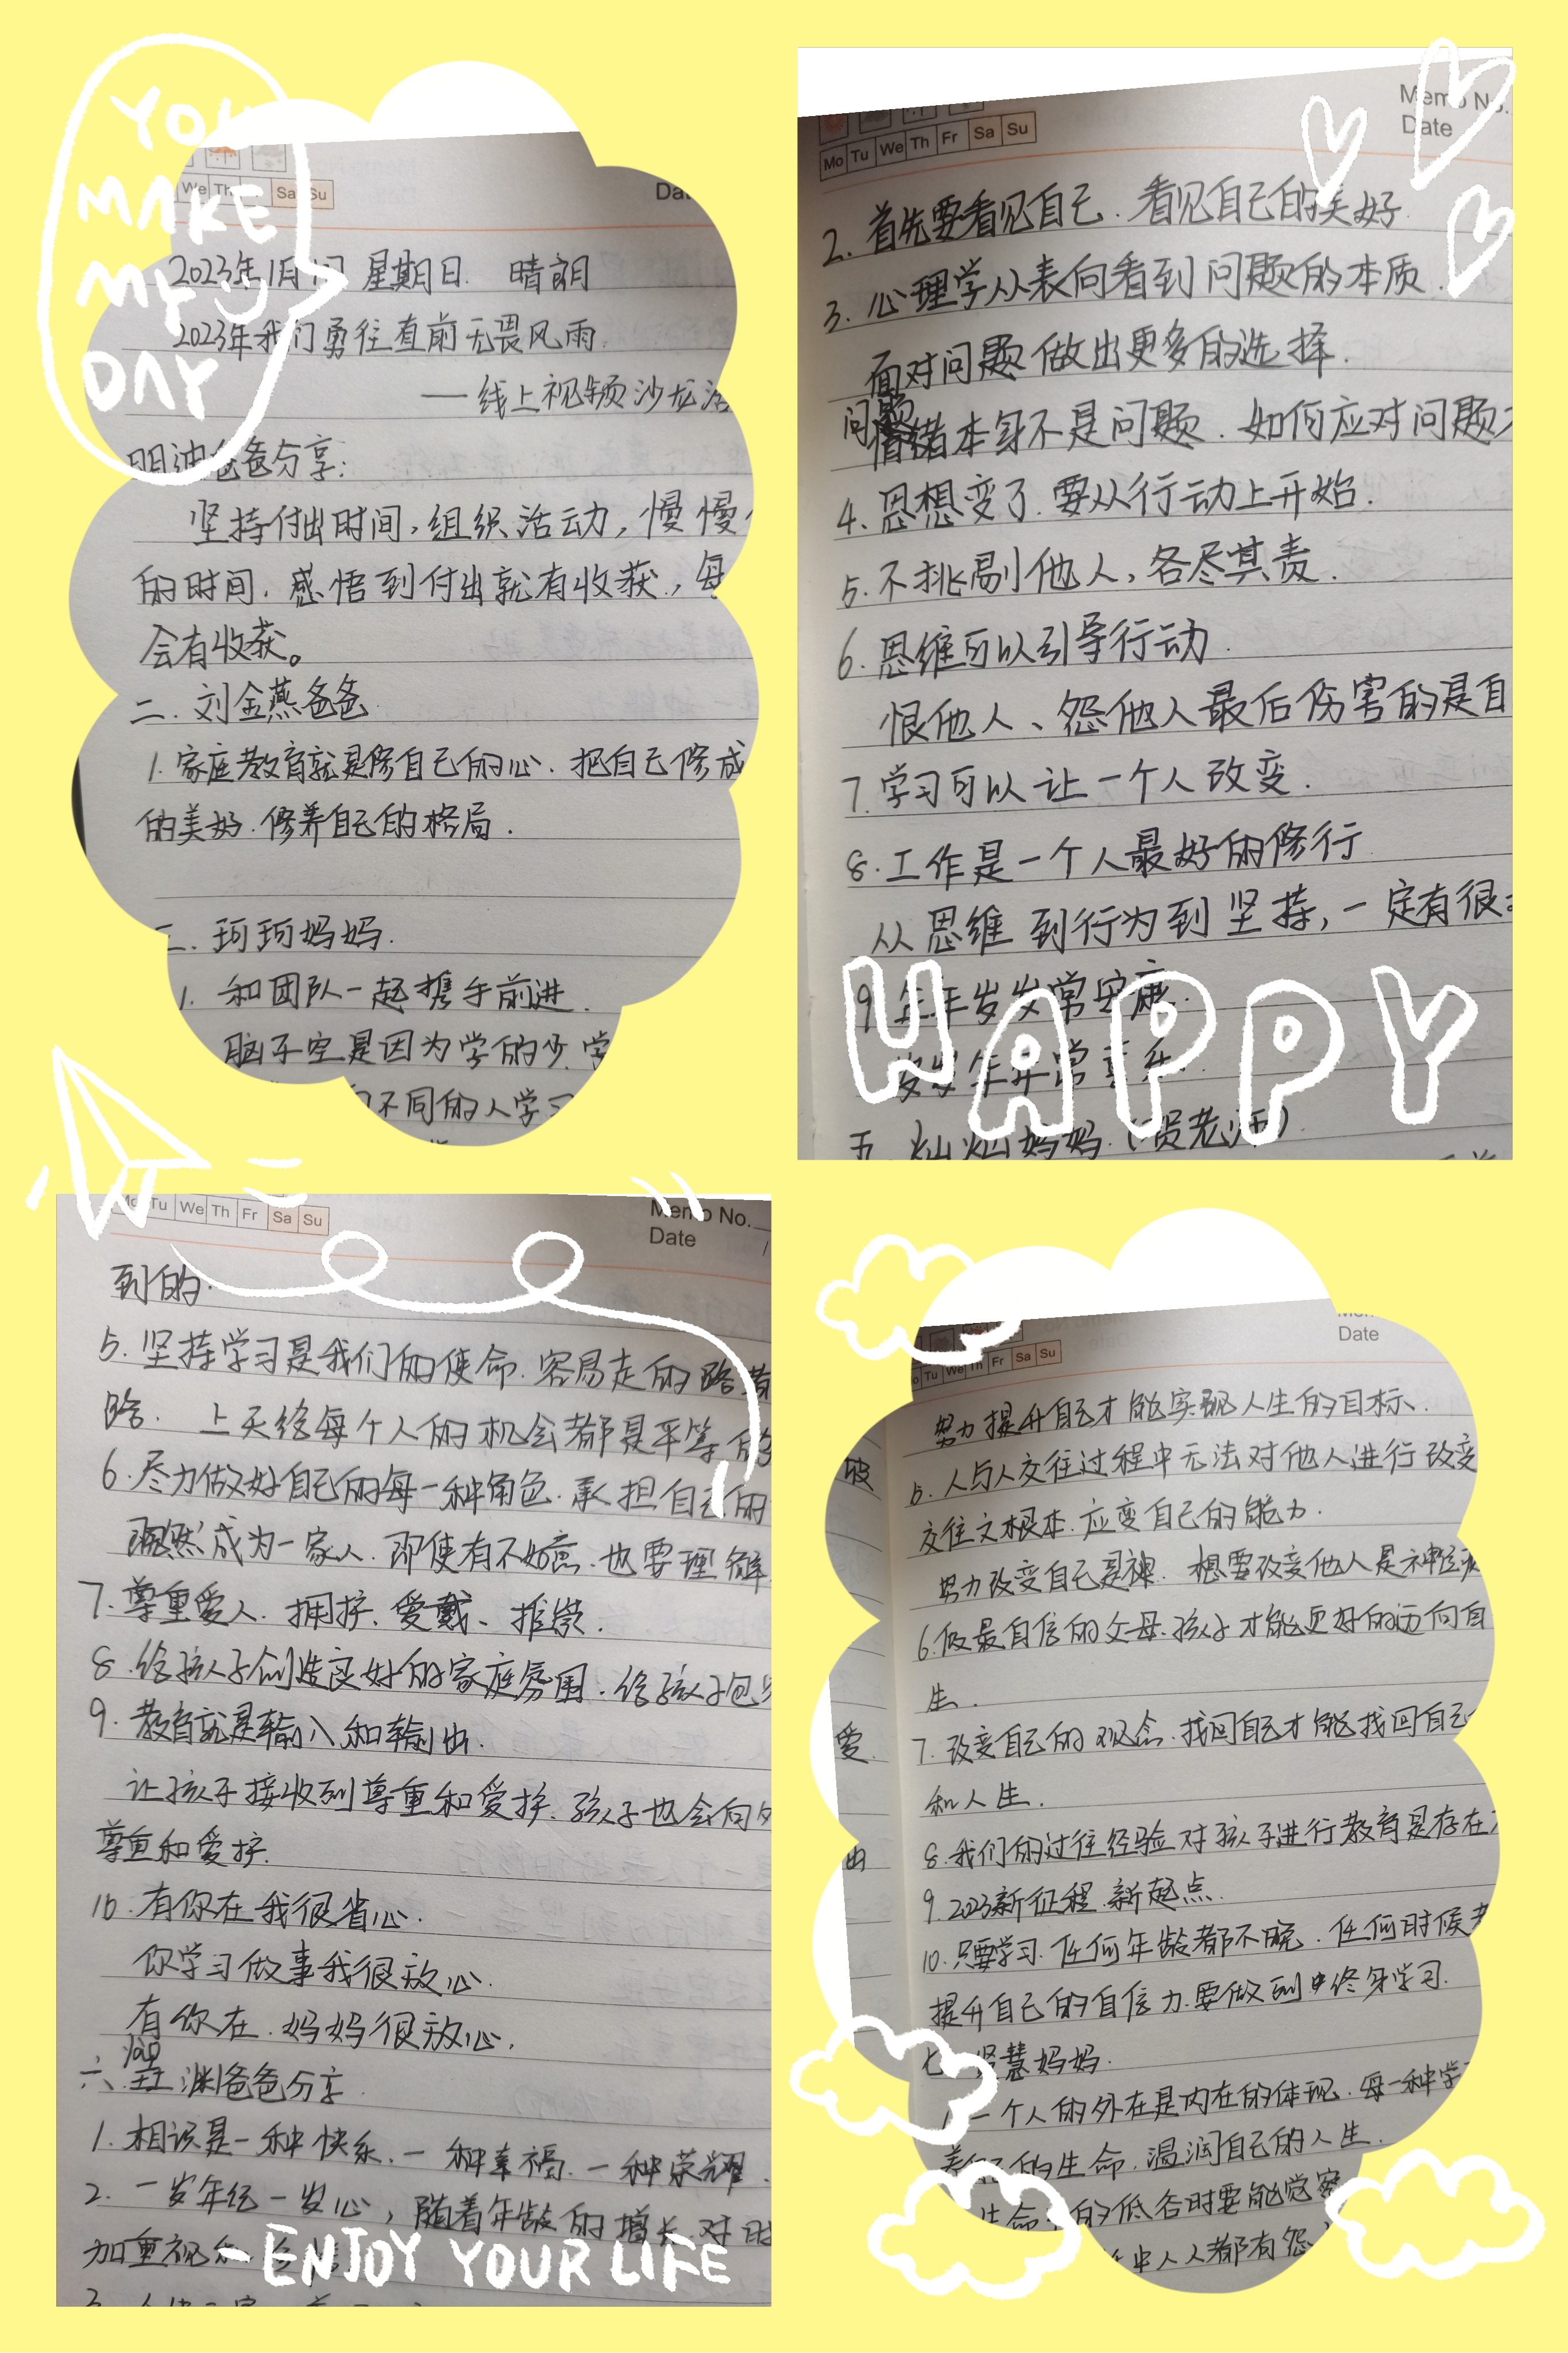 YOU
MAKE
MY
DAY
We Th Sa Su
2023年1月1日 星期日. 晴朗
2023年我们勇往直前无畏风雨.
——线上视频沙龙活
爸爸分享:
坚持付出时间,组织活动,慢慢
的时间.感悟到付出就有收获.,每
会有收获。
二.刘金燕爸爸
1.家庭教育就是修自己的心.把自己修成
的美好.修养自己的格局.
三.珂珂妈妈.
1.和团队一起携手前进.
脑子空是因为学的少.学
不同的人学习
Memo No.
Mo Tu We Th Fr Sa Su
Date
2.首先要看见自己.看见自己的美好.
3.心理学从表向看到问题的本质.
面对问题做出更多的选择.
问题
情绪本身不是问题.如何应对问题
4.思想变了.要从行动上开始.
5.不挑剔他人,各尽其责.
6.思维可以引导行动.
恨他人、怨他人最后伤害的是自
7.学习可以让一个人改变.
8.工作是一个人最好的修行
从思维到行为到坚持,一定有很
9.年年岁岁常安康.
岁岁年年常喜乐.
HAPPY
五.灿灿妈妈.(贾老师)
Mo Tu We Th Fr Sa Su
Memo No.
Date
到的.
5.坚持学习是我们的使命.容易走的路
路. 上天给每个人的机会都是平等的
6.尽力做好自己的每一种角色.承担自己的
既然成为一家人.即使有不如意.也要理解
7.尊重爱人.拥护、爱戴、推崇.
8.给孩子创造良好的家庭氛围.给孩子包
9.教育就是输入和输出.
让孩子接收到尊重和爱护.孩子也会向外
尊重和爱护.
10.有你在我很省心.
你学习做事我很放心.
有你在.妈妈很放心.
六. 渊爸爸分享.
1.相识是一种快乐.一种幸福.一种荣耀.
2.一岁年纪一岁心,随着年龄的增长.对时
加重视
ENJOY YOUR LIFE
Date
Tu We Th Fr Sa Su
努力提升自己才能实现人生的目标、
5.人与人交往过程中无法对他人进行改变
交往之根本.应变自己的能力.
努力改变自己是神.想要改变他人是神经病
6.做最自信的父母.孩子才能更好的迈向自
生.
爱.
7.改变自己的观念.找回自己才能找回自己
和人生.
出
8.我们的过往经验对孩子进行教育是存在
9.2023新征程.新起点.
10.只要学习.任何年龄都不晚.任何时候
提升自己的自信力.要做到终身学习.
七. 慧妈妈.
1.一个人的外在是内在的体现.每一种学
的生命.温润自己的人生.
生命的低谷时要能觉察
中人人都有怨